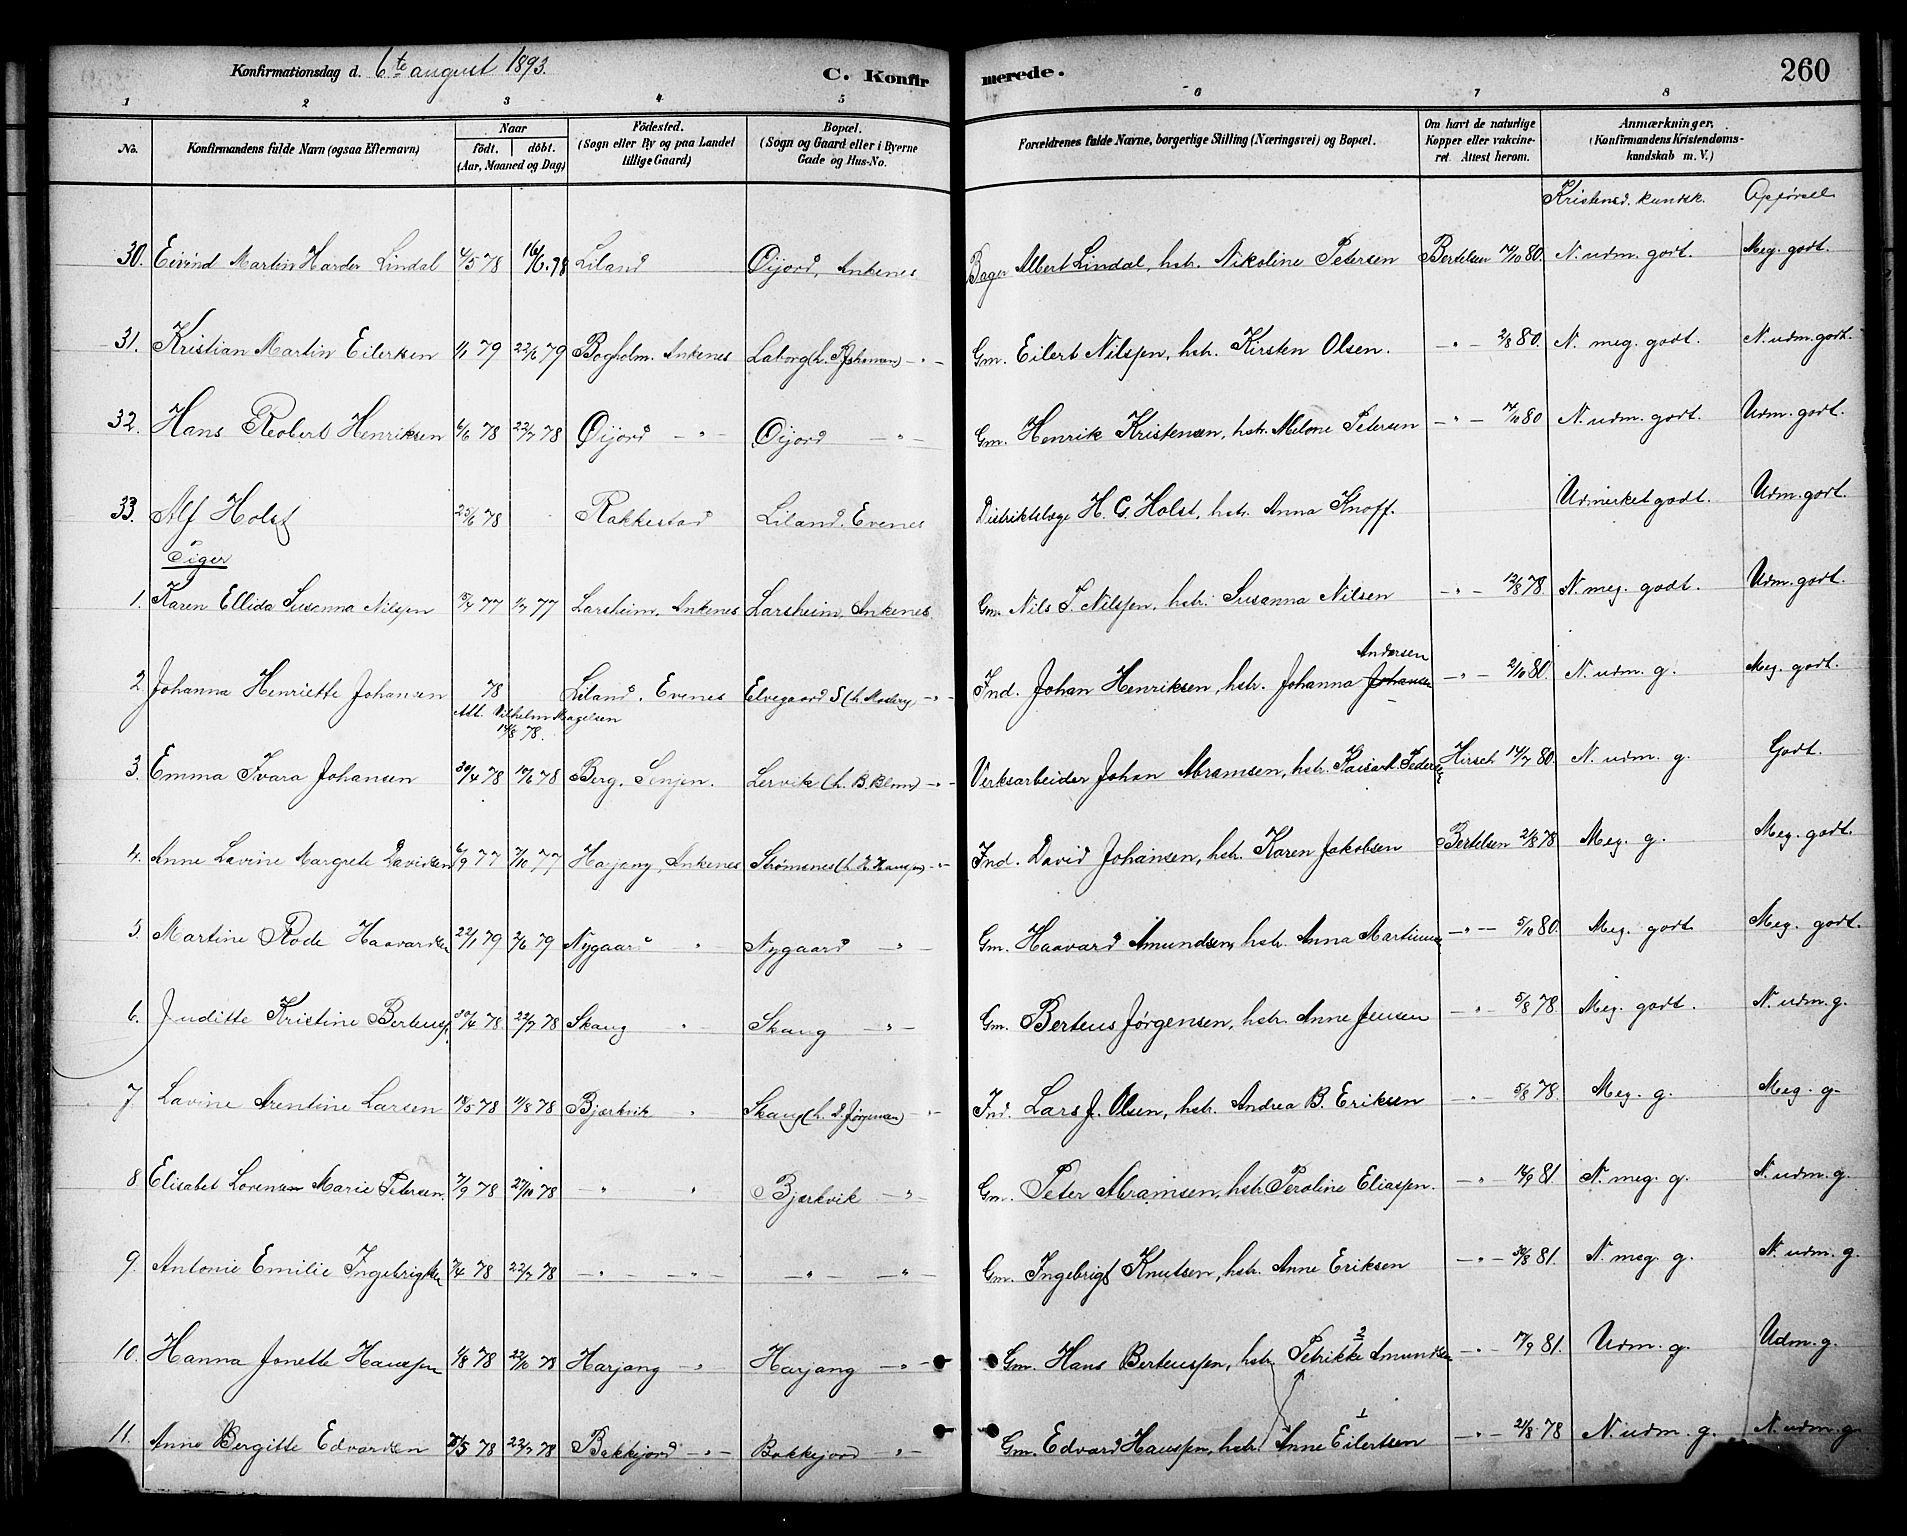 Konfirmationsdag d. 6te august 1893. C. Konfirmerede. 260
1 2 3 4 5 6 7 8
No. Konfirmandens fulde Navn (ogsaa Efternavn) Naar født. døbt. (Aar, Maaned og Dag) Födested. (Sogn eller By og paa Landet tillige Gaard) Bopæl. (Sogn og Gaard eller i Byerne Gade og Hus-No. Forældrenes fulde Navne, borgerlige Stilling (Næringsvei) og Bopæl. Om havt de naturlige Kopper eller vakcineret. Attest herom. Anmærkninger, (Konfirmandens Kristendomskundskab m. V.)
Kristend. kundsk. Opførsel
30. Eivind Martin Harder Lindal 4/5 78 16/6 78 Liland Øijord, Ankenes Bager Albert Lindal, hstr. Nikoline Petersen Bertelsen 14/10 80. N. udm. godt. Meg. godt.
31. Kristian Martin Eilertsen 1/1 79 22/6 79 Bogholm. Ankenes Laborg (h. Johansen) -"- Gm. Eilert Nilssen, hstr. Kirsten Olsen. -"- 2/8 80. N. meg. godt. N. udm. godt.
32. Hans Robert Henriksen 6/6 78 22/7 78 Øijord -"- Øijord -"- Gm. Henrik Kristensen, hstr. Melone Petersen -"- 14/10 80 N. udm. godt. Udm. godt.
33. Alf Holst 25/6 78 Rakkestad Liland. Evenes Distriktslæge H. G. Holst, hstr. Anna Knoff. Udmerket godt. Udm. godt.
Piger
1. Karen Ellida Susanna Nilssen 15/4 77 1/7 77 Larsheim, Ankenes Larsheim, Ankenes. Gm. Nils P. Nilssen, hstr. Susanna Nilsen -"- 12/8 78. N. meg. godt. Udm. godt.
2. Johanna Henriette Johansen 78 Liland. Evenes Elvegaard S (h. ) -"- Ind. Johan Henriksen, hstr. Johanna Johansen Andersen -"- 2/10 80. N. udm. g. Meg. godt.
Att. Vilhelm Magelsen 14/8 78.
3. Emma Ivara Johansen 30/4 78 14/6 78 Berg. Senjen. Lervik (h. B. Blom) -"- Verksarbeider Johan Abramsen, hstr. Kaisa L. Pedersen Hirsch 14/7 80. N. udm. g. Godt.
4. Anne Lavine Margrete Davidsen 6/9 77 7/10 77 Harjang, Ankenes Strømsnes (h. R. Hanssen) -"- Ind. David Johansen, hstr. Karen Jakobsen Bertelsen 21/8 78 Meg. g. Meg. godt.
5. Martine Rode Haavardsen 22/1 79 2/6 79 Nygaard " Nygaard -"- Gm. Haavard Amundsen, hstr. Anna Martinussen -"- 5/10 80. Meg. godt Meg. godt.
6. Juditte Kristine Berteussen 30/6 78 22/7 78 Skaug " Skaug -"- Gm. Berteus Jørgensen, hstr. Anne Jensen -"- 5/8 78. Meg. godt. N. udm. g.
7. Lavine Arentine Larsen 18/5 78 11/8 78 Bjærkvik " Skaug (h. D. Jørgensen) -"- Ind. Lars J. Olsen, hstr. Andrea B. Eriksen -"- 5/8 78. Meg. g. Meg. g.
8 Elisabet Lorensen Marie Petersen. 7/9 78 27/10 78 -"- " Bjærkvik -"- Gm. Peter Abramsen, hstr. Peroline Eliassen. -"- 14/9 81. N. meg. g. N. udm. g.
9. Antonie Emilie Ingebrigtsen 7/4 78 22/7 78 -"- -"- -"- -"- Gm. Ingebrigt Knutsen, hstr. Anne Eriksen -"- 30/8 81. N. meg. g. N. udm. g.
10. Hanna Jonette Hanssen 1/8 78 22/10 78 Harjang " Harjang -"- Gm. Hans Berteussen, hstr. Petrikke 2 Amundsen -"- 17/9 81. Udm. g. Udm. g.
11. Anne Bergitte Edvardsen 31/5 78 22/7 78 Bakkejord -"- Bakkejord " Gm. Edvard Hanssen, hstr. Anne 1 Eilertsen -"- 21/8 78 N. udm. g. N. udm. g.